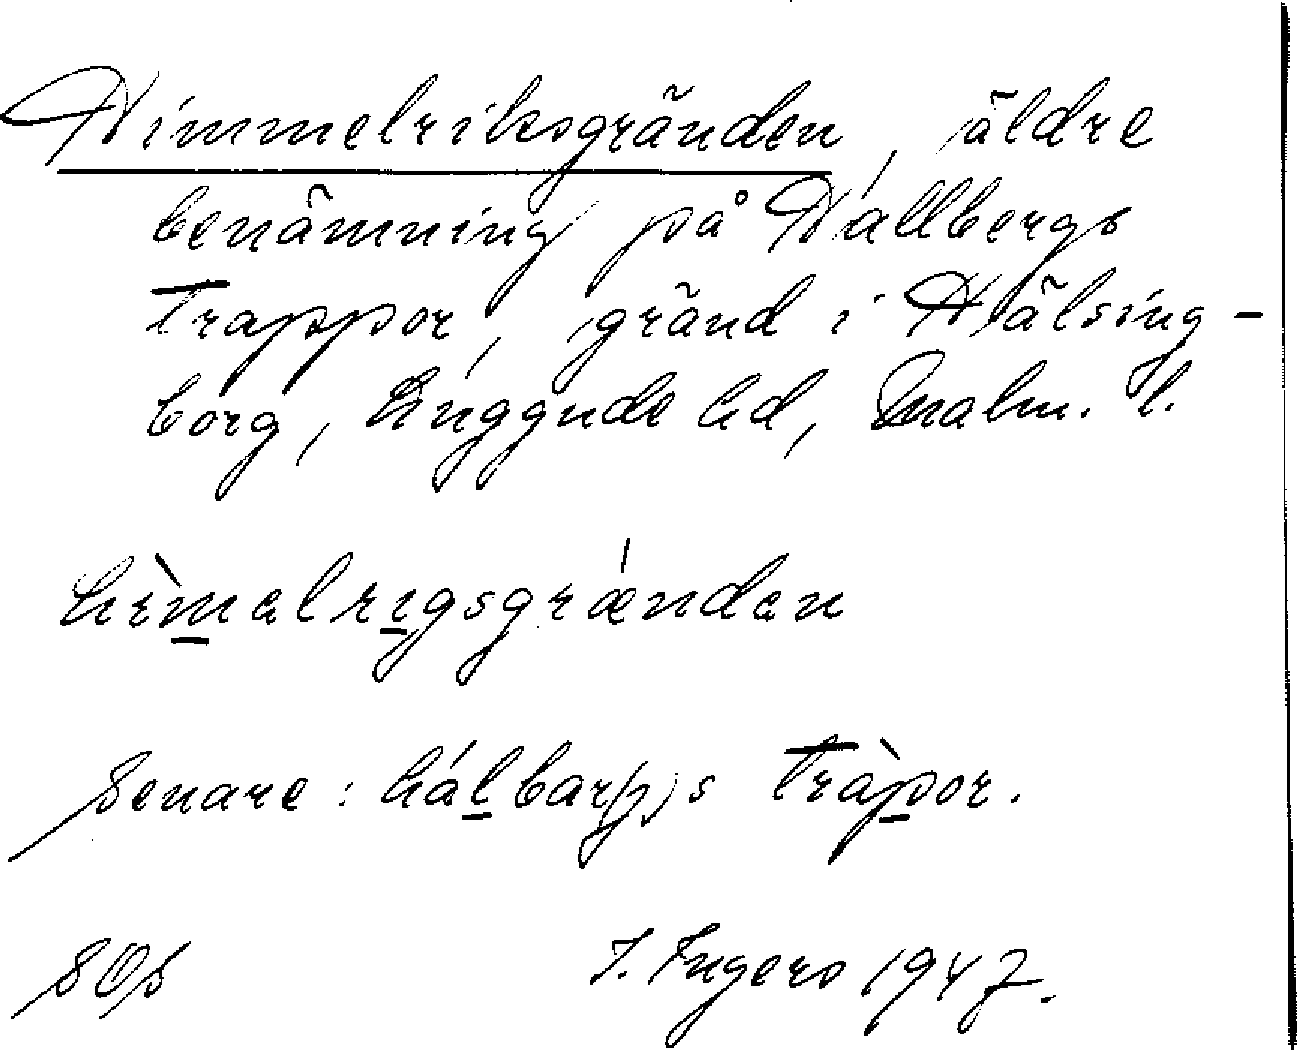 Himmelriksgränden, äldre
benämning på Hallbergs
Trappor, gränd i Hälsing-
borg, Luggude hd, Malm. l.
hìmelrigsgrænden
Senare: hálbar(j)s tràpor.
I. Ingers 1947.